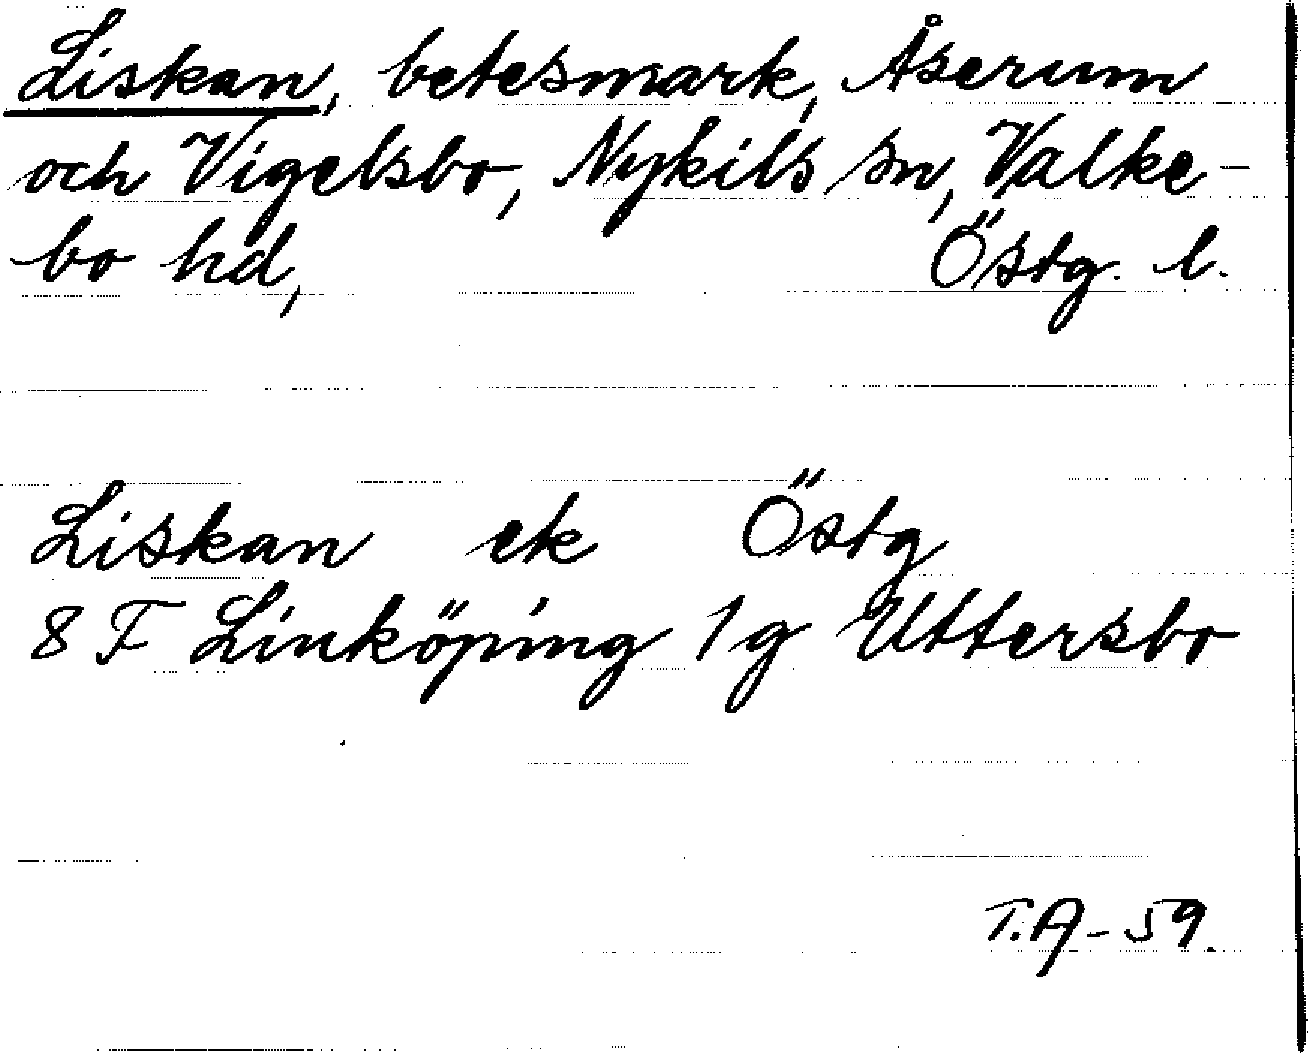 Liskan, betesmark, Åserum
och Vigelsbo, Nykils sn, Valke-
bo hd, Östg. l.
Liskan ek Östg
8 F Linköping 1g Uttersbo
T.A-59.